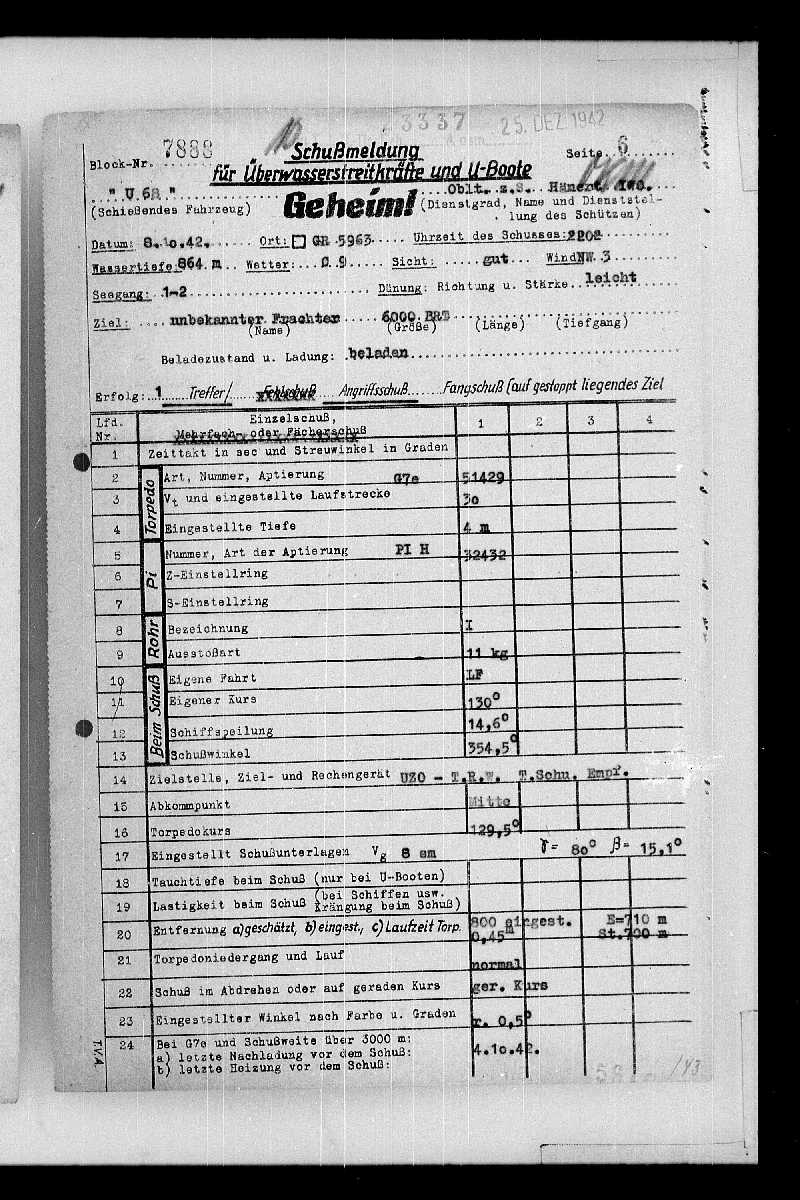 3337 25. DEZ. 1942
Block-Nr. 7888 Schußmeldung Seite 6
für Überwasserstreitkräfte und U-Boote
" U.68 " Geheim! Oblt. z.S. Hänert, IWO.
(Schießendes Fahrzeug) (Dienstgrad, Name und Dienststel-
lung des Schützen)
Datum: 8.10.42. Ort: GR 5963 Uhrzeit des Schusses: 2202
Wassertiefe: 864 m Wetter: C 9 Sicht: gut Wind NW. 3
Seegang: 1-2 Dünung: Richtung u. Stärke leicht
Ziel: unbekannter Frachter 6000 BRT
(Name) (Größe) (Länge) (Tiefgang)
Beladezustand u. Ladung: beladen
Erfolg: 1 Treffer/ Fehlschuß Angriffsschuß Fangschuß (auf gestoppt liegendes Ziel
Lfd. Nr. Einzelschuß, 1 2 3 4
Mehrfach- oder Fächerschuß
1 Zeittakt in sec und Streuwinkel in Graden
Torpedo
2 Art, Nummer, Aptierung G7e 51429
3 Vt und eingestellte Laufstrecke 30
4 Eingestellte Tiefe 4 m
Pi
5 Nummer, Art der Aptierung PI H 32432
6 Z-Einstellring
7 S-Einstellring
Rohr
8 Bezeichnung I
9 Ausstoßart 11 kg
Beim Schuß
10 Eigene Fahrt LF
11 Eigener Kurs 130°
12 Schiffspeilung 14,6°
13 Schußwinkel 354,5°
14 Zielstelle, Ziel- und Rechengerät UZO - T.R.W. T.Schu. Empf.
15 Abkommpunkt Mitte
16 Torpedokurs 129,5°
17 Eingestellt Schußunterlagen Vg 8 sm γ= 80° β= 15,1°
18 Tauchtiefe beim Schuß (nur bei U-Booten)
19 Lastigkeit beim Schuß (bei Schiffen usw. Krängung beim Schuß)
20 Entfernung a) geschätzt, b) eingest., c) Laufzeit Torp. 800 eingest. E=710 m
0,45m St.700 m
21 Torpedoniedergang und Lauf normal
22 Schuß im Abdrehen oder auf geraden Kurs ger. Kurs
23 Eingestellter Winkel nach Farbe u. Graden r. 0,5°
24 Bei G7e und Schußweite über 3000 m:
a) letzte Nachladung vor dem Schuß: 4.10.42.
b) letzte Heizung vor dem Schuß:
T.V.A.
/43